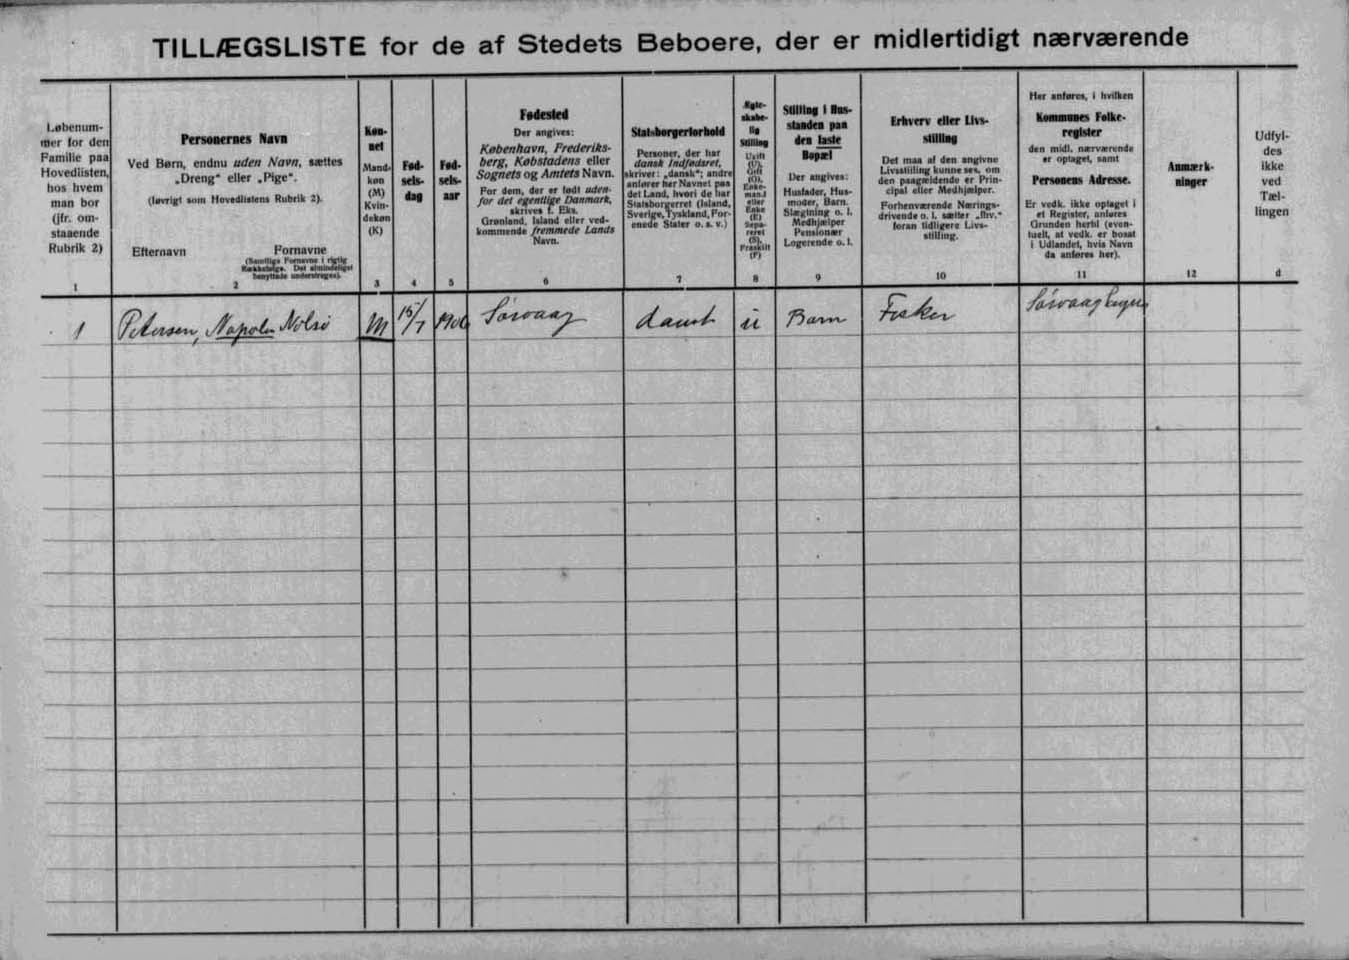 TILLÆGSLISTE for de af Stedets Beboere, der er midlertidigt nærværende
Løbenum-
mer for den
Familie paa
Hovedlisten,
hos hvem
man bor
(jfr. om-
staaende
Rubrik 2)
1
Personernes Navn
Ved Børn, endnu uden Navn, sættes
„Dreng“ eller „Pige“.
(Iøvrigt som Hovedlistens Rubrik 2).
Efternavn
Fornavne
(Samtlige Fornavne i rigtig
Rækkefølge. Det almindeligst
benyttede understreges).
2
Køn-
net
Mand-
køn
(M)
Kvin-
dekøn
(K)
3
Fød-
sels-
dag
4
Fød-
sels-
aar
5
Fødested
Der angives:
København, Frederiks-
berg, Købstadens eller
Sognets og Amtets Navn.
For dem, der er født uden-
for det egentlige Danmark,
skrives f. Eks.
Grønland, Island eller ved-
kommende fremmede Lands
Navn.
6
Statsborgerforhold
Personer, der har
dansk Indfødsret,
skriver: „dansk“; andre
anfører her Navnet paa
det Land, hvori de har
Statsborgerret (Island,
Sverige, Tyskland, For-
enede Stater o. s. v.)
7
Ægte-
skabe-
lig
Stilling
Ugift
(U),
Gift
(G),
Enke-
mand
eller
Enke
(E)
Sepa-
reret
(S),
Fraskilt
(F)
8
Stilling i Hus-
standen paa
den faste
Bopæl
Der angives:
Husfader, Hus-
moder, Barn.
Slægtning o. l.
Medhjælper
Pensionær
Logerende o. l.
9
Erhverv eller Livs-
stilling
Det maa af den angivne
Livsstilling kunne ses, om
den paagældende er Prin-
cipal eller Medhjælper.
Forhenværende Nærings-
drivende o. l. sætter „fhv.“
foran tidligere Livs-
stilling.
10
Her anføres, i hvilken
Kommunes Folke-
register
den midl. nærværende
er optaget, samt
Personens Adresse.
Er vedk. ikke optaget i
et Register, anføres
Grunden hertil (even-
tuelt, at vedk. er bosat
i Udlandet, hvis Navn
da anføres her).
11
Anmærk-
ninger
12
Udfyl-
des
ikke
ved
Tæl-
lingen
d
1 Petersen, Napoleon Nolsø M 15/7 1906 Sørvaag dansk u Barn Fisker Sørvaag